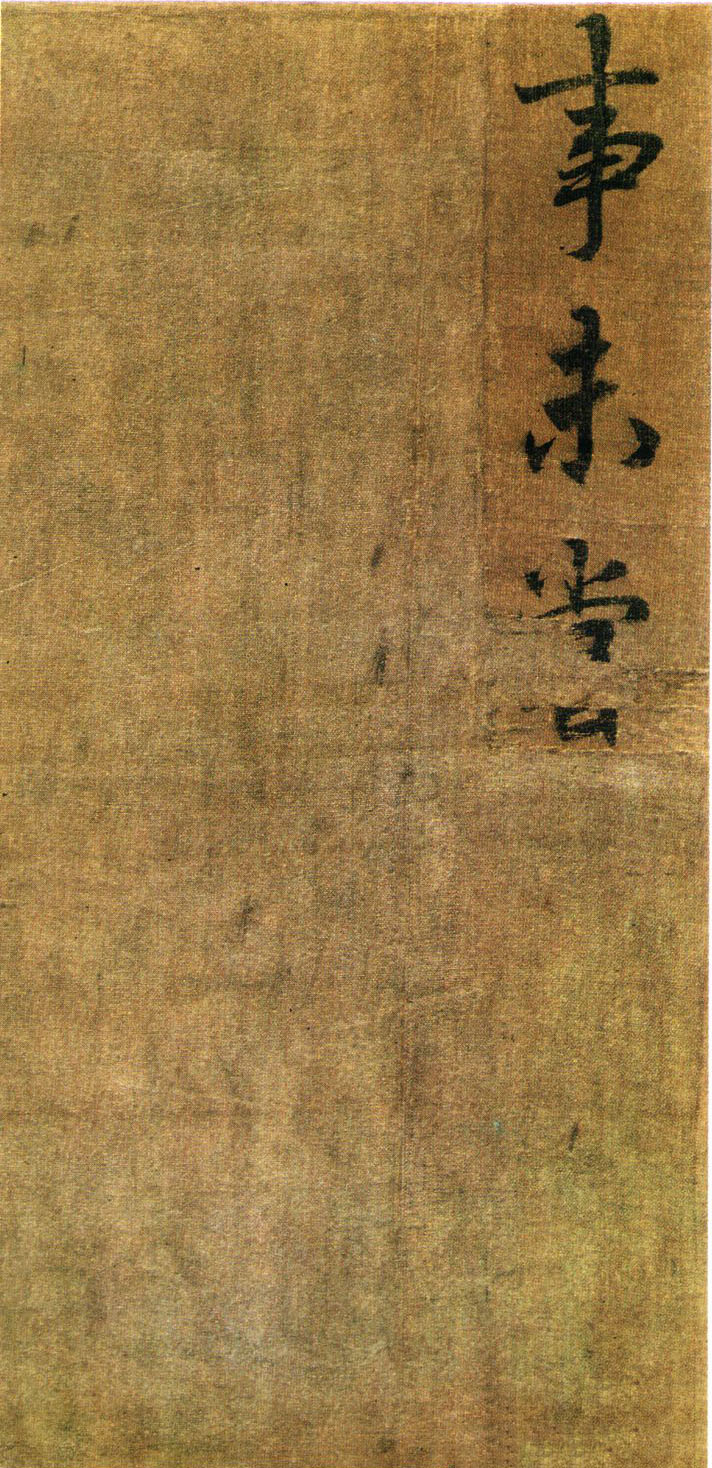 事未嘗